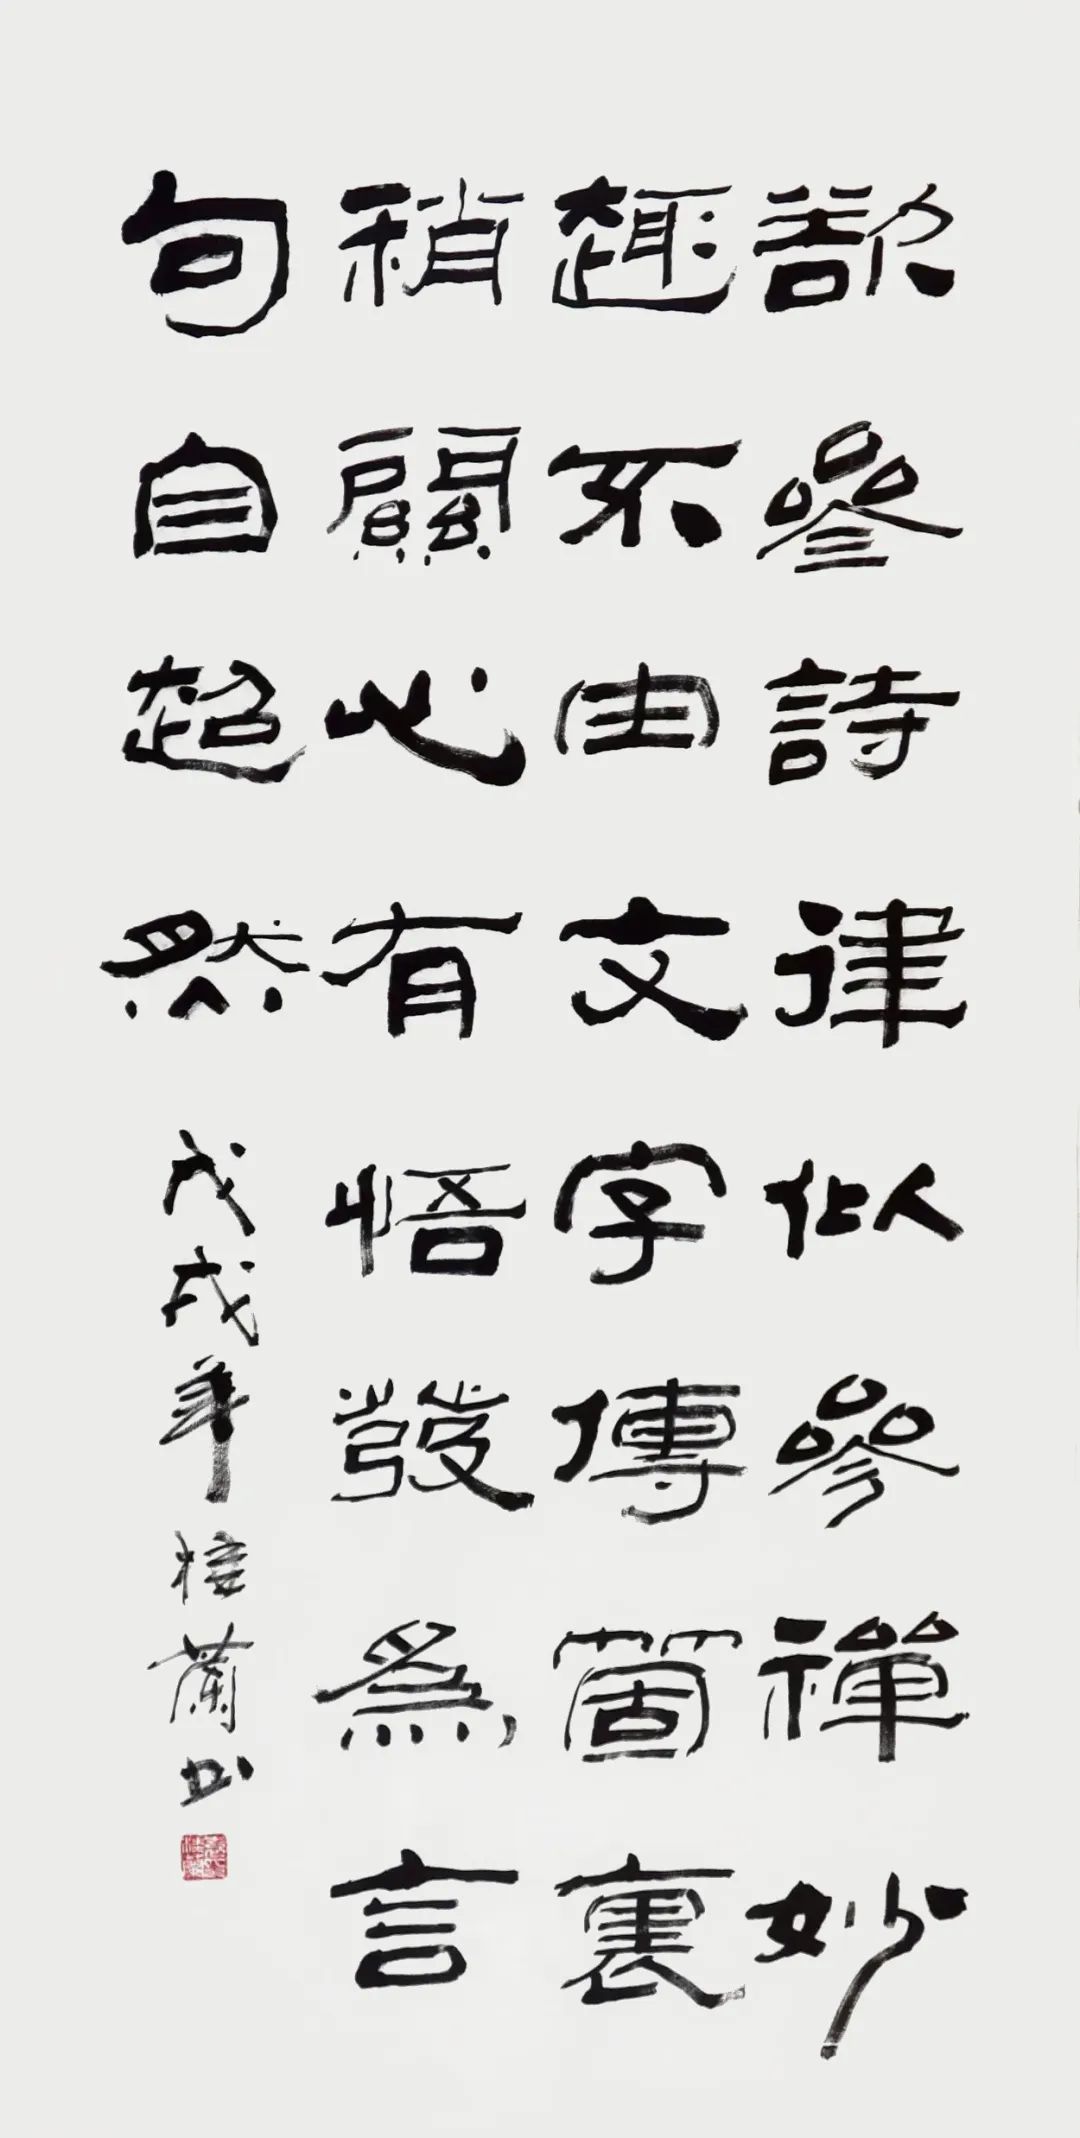 欲參詩律似參禪妙
趣不由文字傳箇裏
稍關心有悟發爲言
句自超然
戊戌年 书